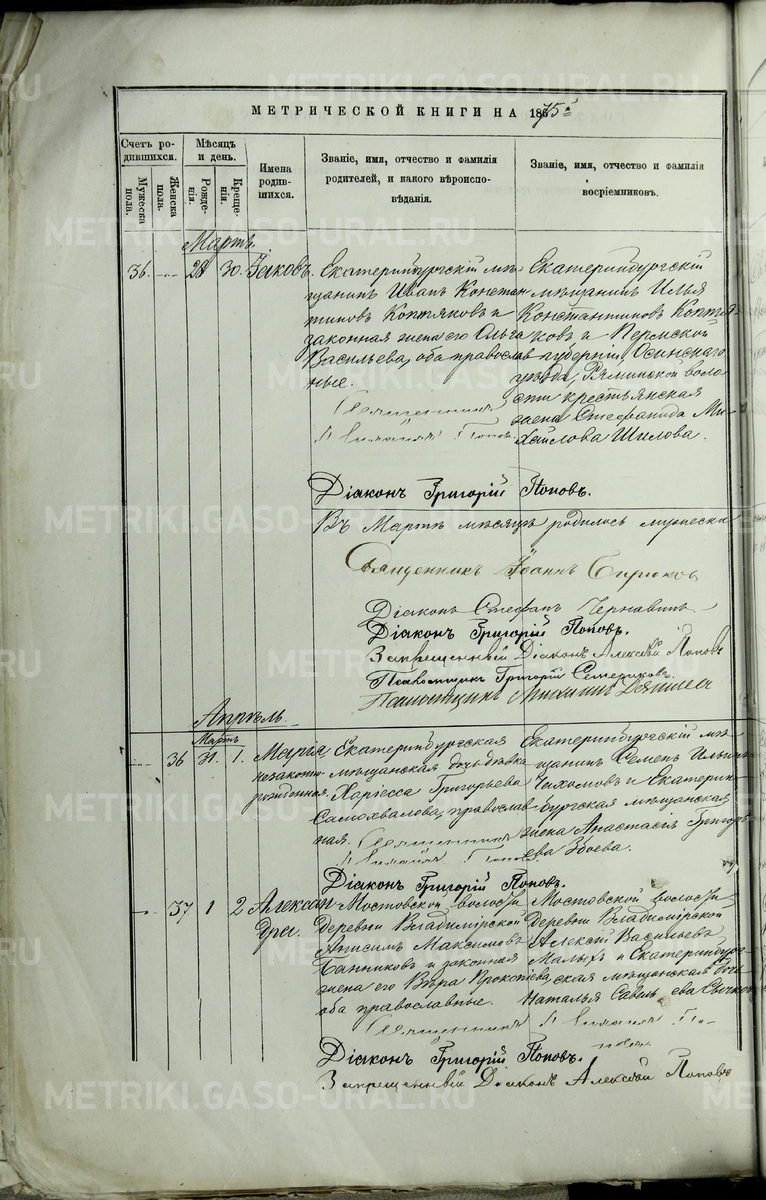 МЕТРИЧЕСКОЙ КНИГИ НА 1875
Счетъ родившихся.
Мужеска пола.
Женска пола.
Мѣсяцъ и день.
Рожденія.
Крещенія.
Имена родившихся.
Званіе, имя, отчество и фамилія родителей, и какого вѣроисповѣданія.
Званіе, имя, отчество и фамилія воспріемниковъ.
Мартъ.
36. 28 30. Іаковъ.
Екатеринбургскій мѣ-
щанинъ Иванъ Констан
тиновъ Коптяковъ и
законная жена его Ольга
Васильева, оба православ
ные.
Священник
Попов
Екатеринбургскій
мѣщанинъ Илья
Константиновъ Коптя-
ковъ и Пермской
губерніи Осинскаго
уѣзда, Рябининской воло
сти крестьянская
жена Стефанида Ми-
хайлова Шилова.
Діаконъ Григорій Поповъ.
Въ Мартѣ мѣсяцѣ родилось мужеска
Священникъ Іоаннъ
Діаконъ Стефанъ Чернавинъ
Діаконъ Григорій Поповъ.
Запрещенный Діаконъ Алексѣй Поповъ
Псаломщикъ Григорій Семериковъ.
Псаломщикъ
Апрѣль.
Мартъ
36 31. 1. Марія
незаконно-
рожденная.
Екатеринбургская
мѣщанская дочь дѣвка
Григорьева
Самохвалова, православ
ная.
Священник
Екатеринбургскій мѣ-
щанинъ Семенъ Ильинъ
и Екатерин-
бургская мѣщанская
жена Анастасія Григорь
ева Збоева.
Діаконъ Григорій Поповъ.
37 1 2 Алексан
дра.
Мостовской волости
Деревни Владимірской
Анисимъ Максимовъ
Банниковъ и законная
жена его Вѣра Прокопіева
оба православные.
Мостовской волости
Деревни Владимірской
Алексѣй Васильевъ
Малыхъ и Екатеринбург
ская мѣщанская дочь
Наталья Савельева
Священник
Попов
Діаконъ Григорій Поповъ.
Запрещенный Діаконъ Алексѣй Поповъ
METRIKI.GASO-URAL.RU